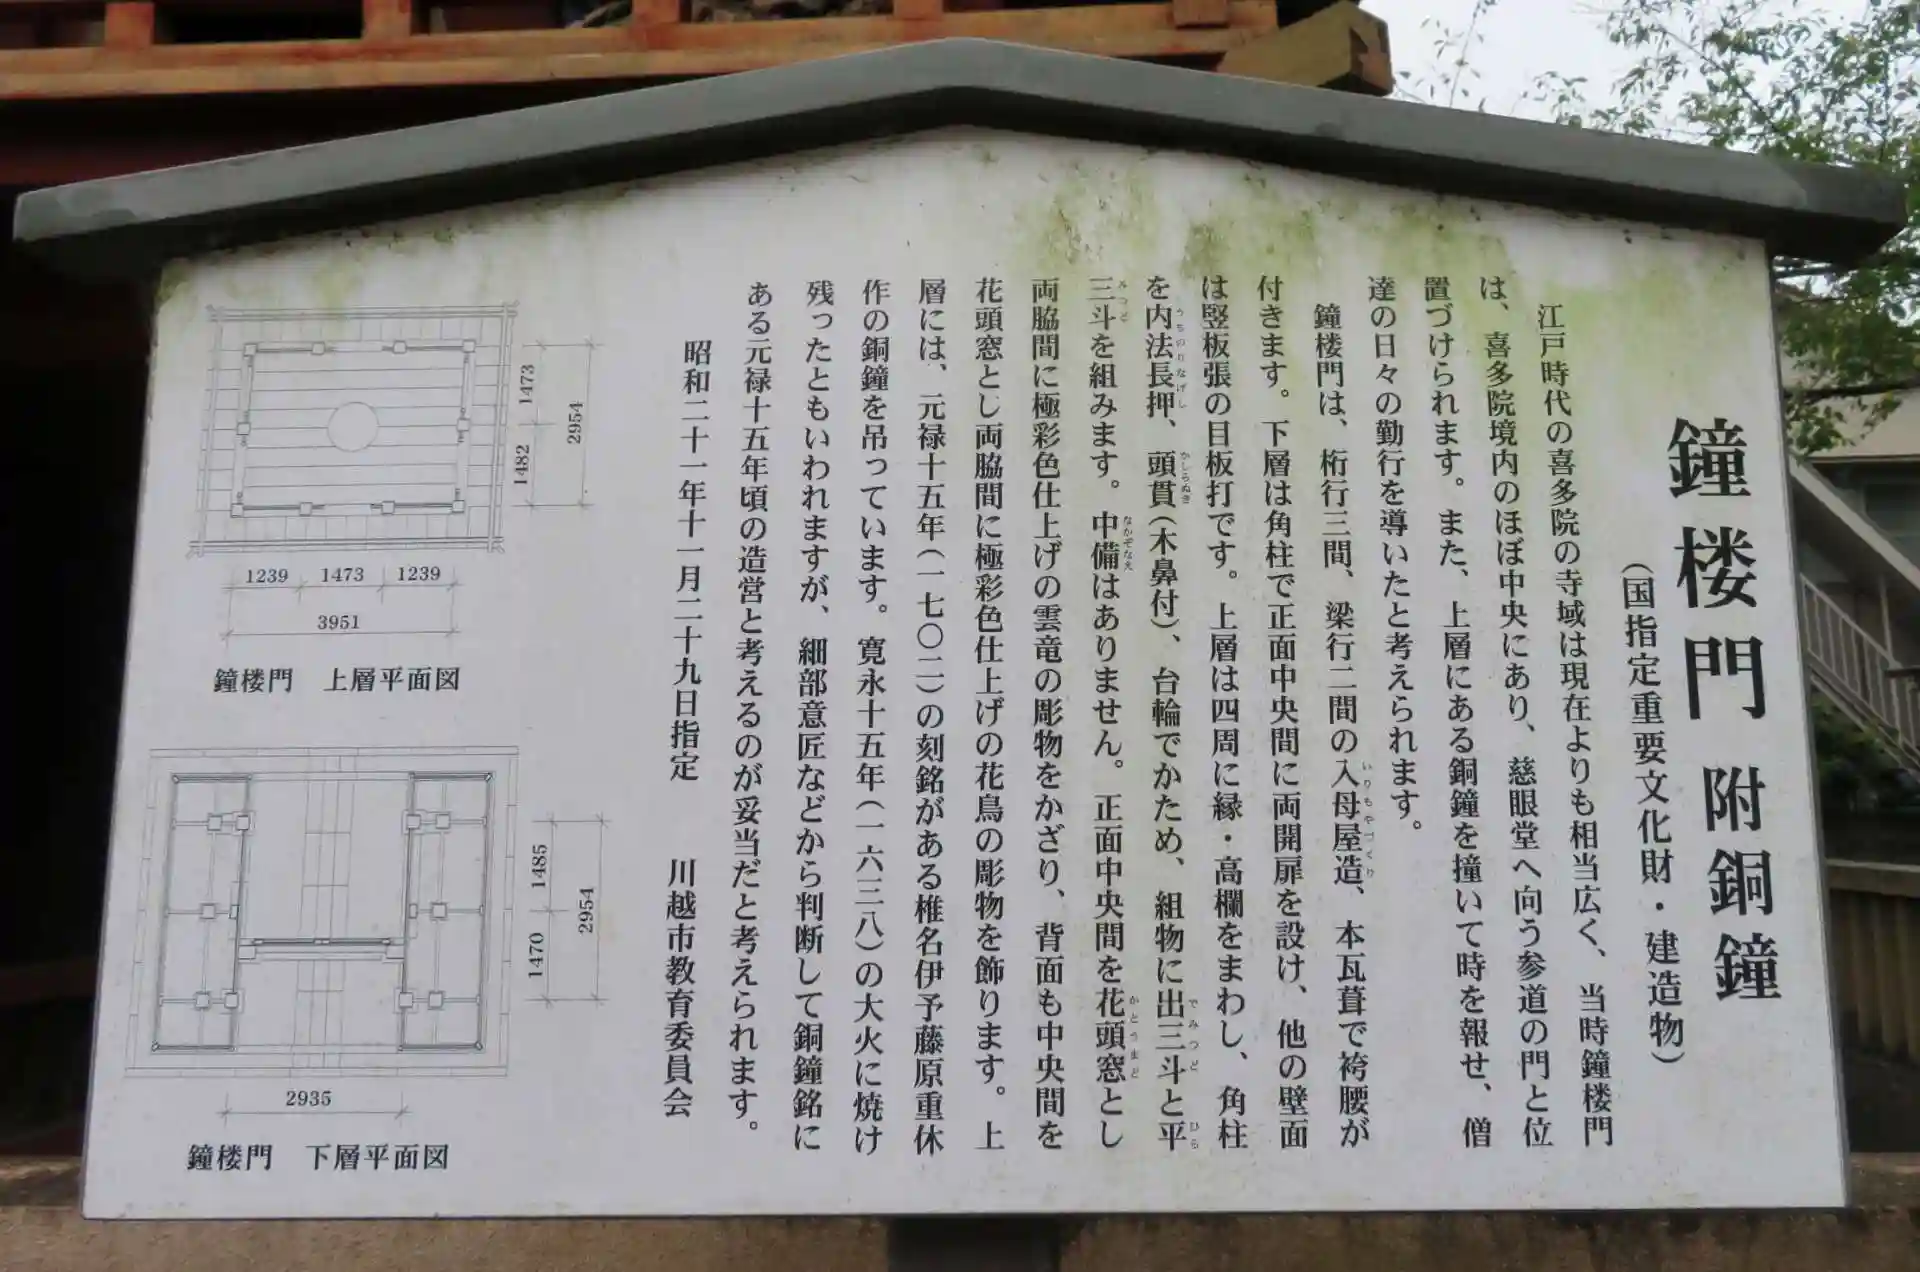 鐘楼門 附銅鐘
（国指定重要文化財・建造物）
江戸時代の喜多院の寺域は現在よりも相当広く、当時鐘楼門
は、喜多院境内のほぼ中央にあり、慈眼堂へ向う参道の門と位
置づけられます。また、上層にある銅鐘を撞いて時を報せ、僧
達の日々の勤行を導いたと考えられます。
鐘楼門は、桁行三間、梁行二間の入母屋造、本瓦葺で袴腰が
いりもやづくり
付きます。下層は角柱で正面中央間に両開扉を設け、他の壁面
は竪板張の目板打です。上層は四周に縁・高欄をまわし、角柱
を内法長押、頭貫（木鼻付）、台輪でかため、組物に出三斗と平
うちのりなげし かしらぬき でみつど ひら
三斗を組みます。中備はありません。正面中央間を花頭窓とし
みつど なかぞなえ かとうまど
両脇間に極彩色仕上げの雲竜の彫物をかざり、背面も中央間を
花頭窓とし両脇間に極彩色仕上げの花鳥の彫物を飾ります。上
層には、元禄十五年（一七〇二）の刻銘がある椎名伊予藤原重休
作の銅鐘を吊っています。寛永十五年（一六三八）の大火に焼け
残ったともいわれますが、細部意匠などから判断して銅鐘銘に
ある元禄十五年頃の造営と考えるのが妥当だと考えられます。
昭和二十一年十一月二十九日指定 川越市教育委員会
1473
2954
1482
1239 1473 1239
3951
鐘楼門 上層平面図
1485
2954
1470
2935
鐘楼門 下層平面図